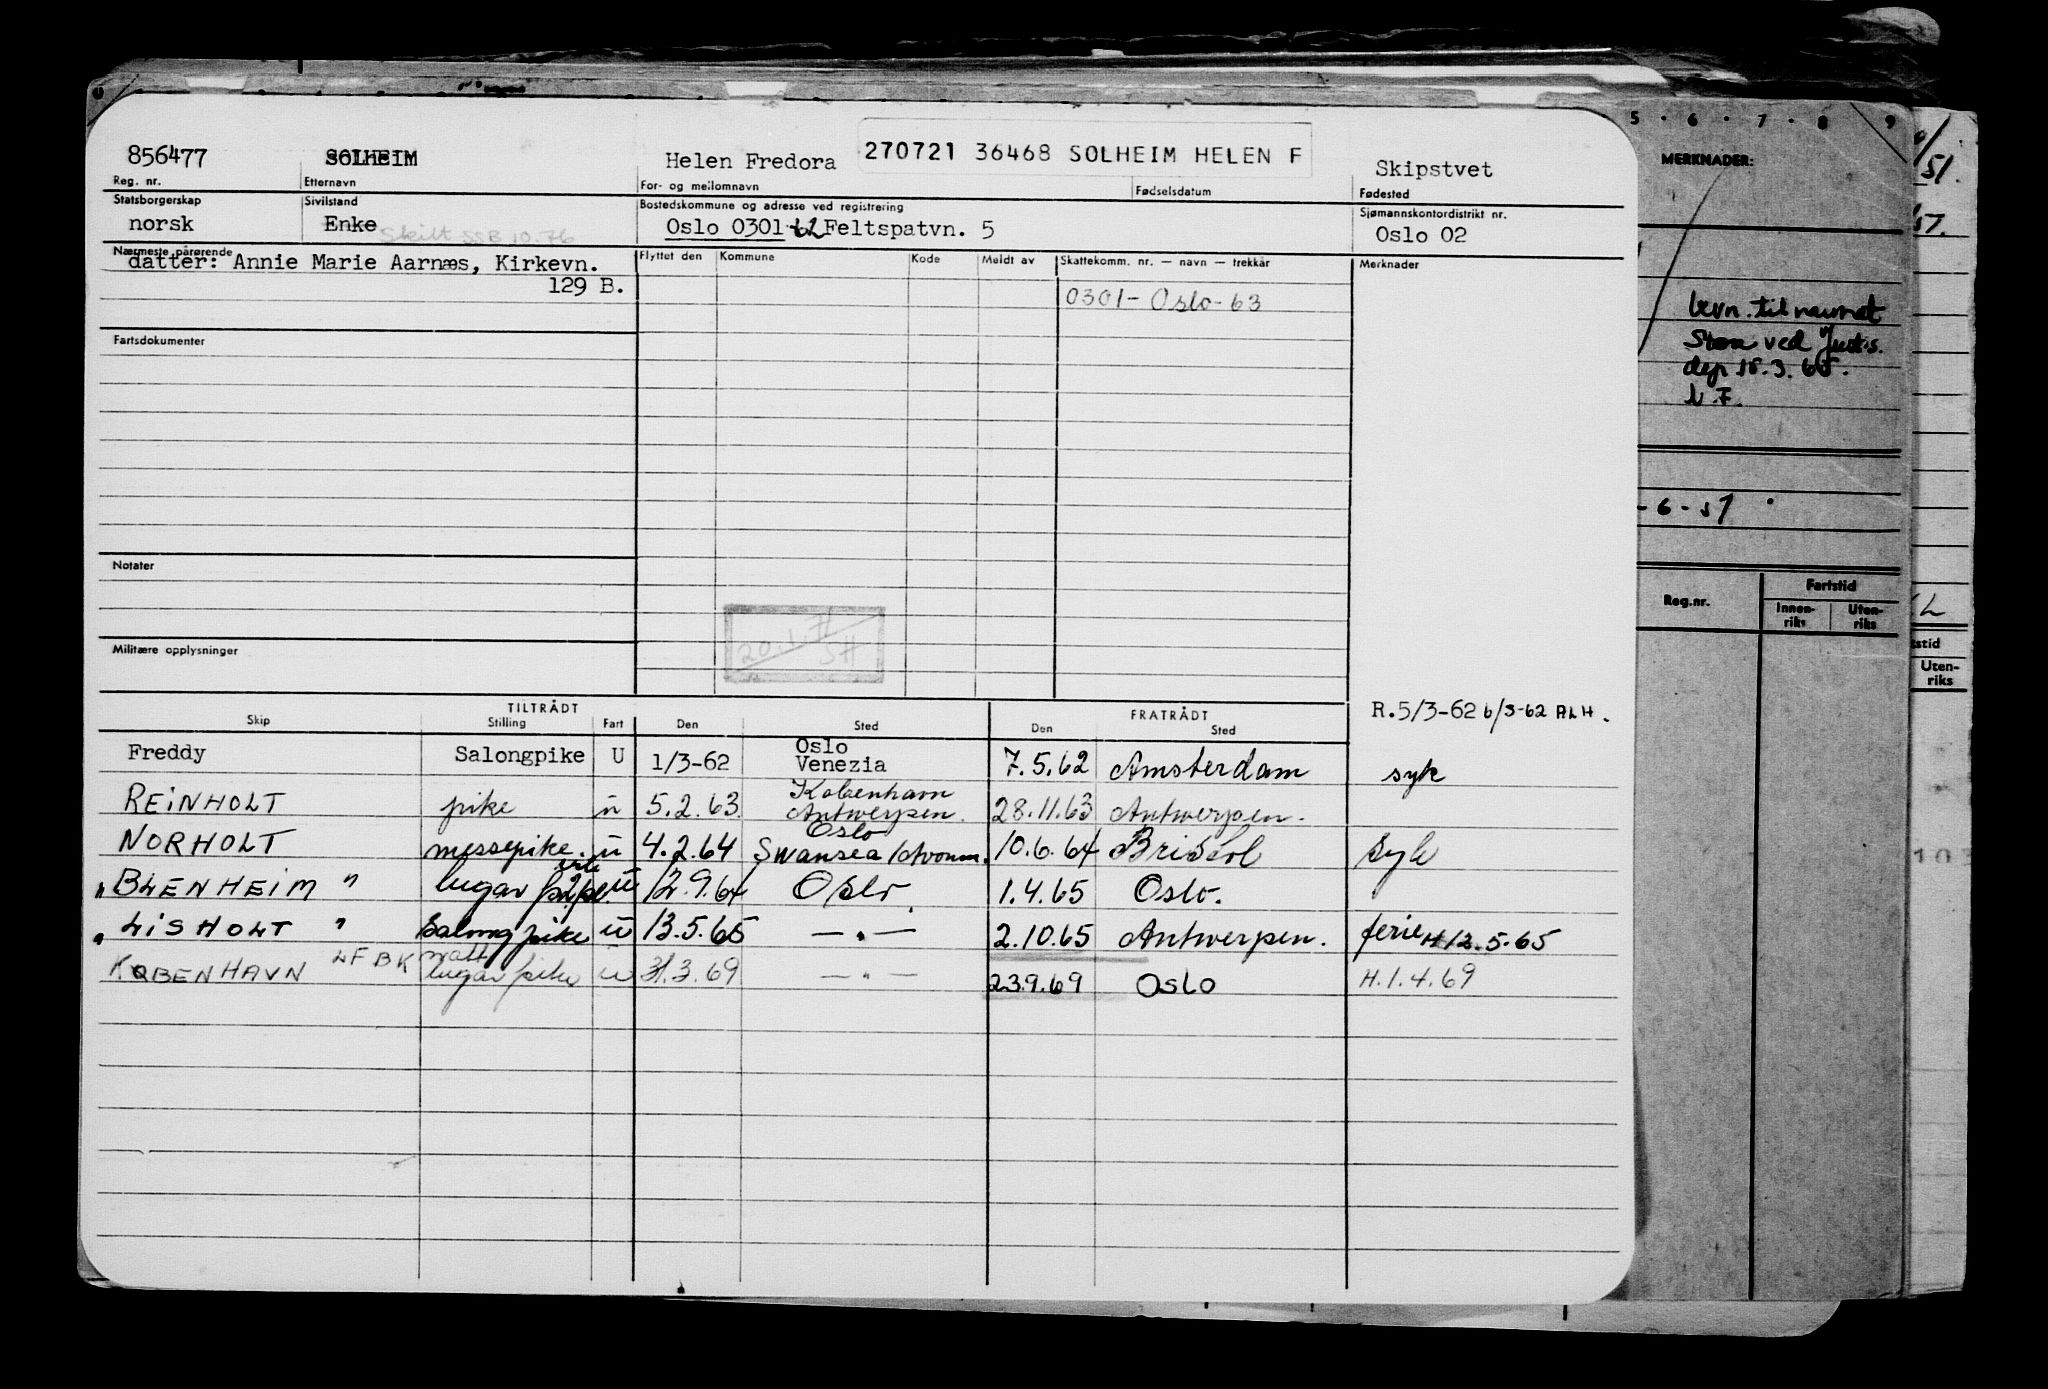 856477 SOLHEIM Helen Fredora 270721 36468 SOLHEIM HELEN F Skipstvet
Reg. nr. Etternavn For- og mellomnavn Fødselsdatum Fødested
Statsborgerskap Sivilstand Bostedskommune og adresse ved registrering Sjømannskontordistrikt nr.
norsk Enke Oslo 0301-62 Feltspatvn. 5 Oslo 02
Skilt SSB 10.76
Nærmeste pårørende Flyttet den Kommune Kode Meldt av Skattekomm. nr. — navn — trekkår Merknader
datter: Annie Marie Aarnæs, Kirkevn.
129 B.
0301- Oslo-63
Fartsdokumenter
Notater
20.1.71
SH
Militære opplysninger
TILTRÅDT FRATRÅDT R.5/3-62 6/3-62 ALH.
Skip Stilling Fart Den Sted Den Sted
Freddy Salongpike U 1/3-62 Oslo Venezia 7.5.62 Amsterdam syk
REINHOLT pike u 5.2.63 København Antwerpen. 28.11.63 Antwerpen.
NORHOLT messepike. u 4.2.64 Oslo Swansea /Avonm. 10.6.64 Bristol Syk
" BLENHEIM " lugar pike u 12.9.64 Oslo. 1.4.65 Oslo.
" LISHOLT " Salong pike u 13.5.65 — " — 2.10.65 Antwerpen. ferie H 12.5.65
KØBENHAVN LFBK natt lugar pike u 31.3.69 — " — 23.9.69 Oslo H.1.4.69
5 · 6 · 7 · 8 9
MERKNADER:
bevn. til navnet
Sten ved Justis.
dep 15.3.65.
-6-57
Reg.nr. Fartstid
Innen-riks Uten-riks
/51.
57.
stid
Uten-
riks
103